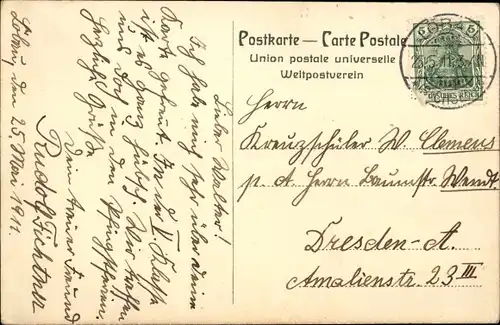 Postkarte — Carte Postale
Union postale universelle
Weltpostverein
5 5
DEUTSCHES REICH
Herrn
Kreuzschüler W. Clemens
p. A. Herrn Baumstr. Wendt
Dresden-A.
Amalienstr. 23 III
Löbau, den 25. Mai 1911.
Lieber Walter!
Ich habe mich sehr über deine
Karte gefreut. In der V. Klasse
ist es ganz hübsch. Wir treffen
uns doch in den Pfingstferien.
Herzliche Grüße
Dein treuer Freund
Rudolf Fichtner